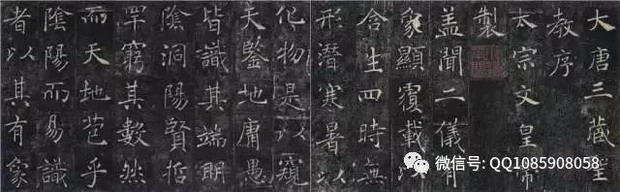 大唐三藏聖
教序
太宗文皇帝
製
盖聞二儀
象顯覆載
含生四時無
形潛寒暑以
化物是以窺
天鑒地庸愚
皆識其端明
陰洞陽賢哲
罕窮其數然
而天地苞乎
陰陽而易識
者以其有象
微信号: QQ1085908058